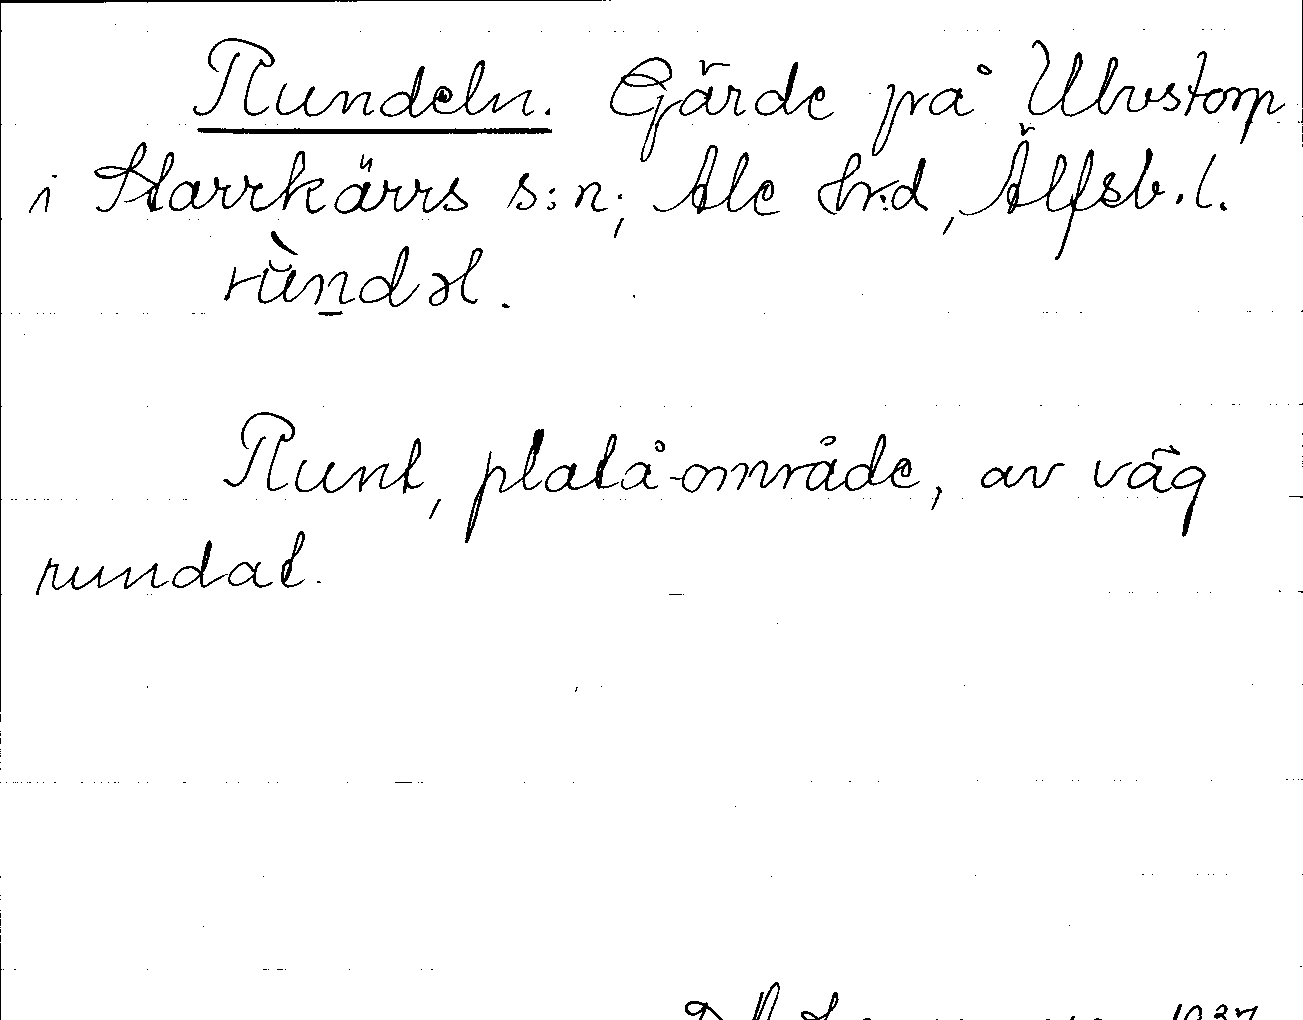 Rundeln. Gärde på Ulvstorp
i Starrkärrs s:n; Ale hr:d, Älfsb. l.
rùndəl.
Runt, platå-område, av väg
rundat.
1937